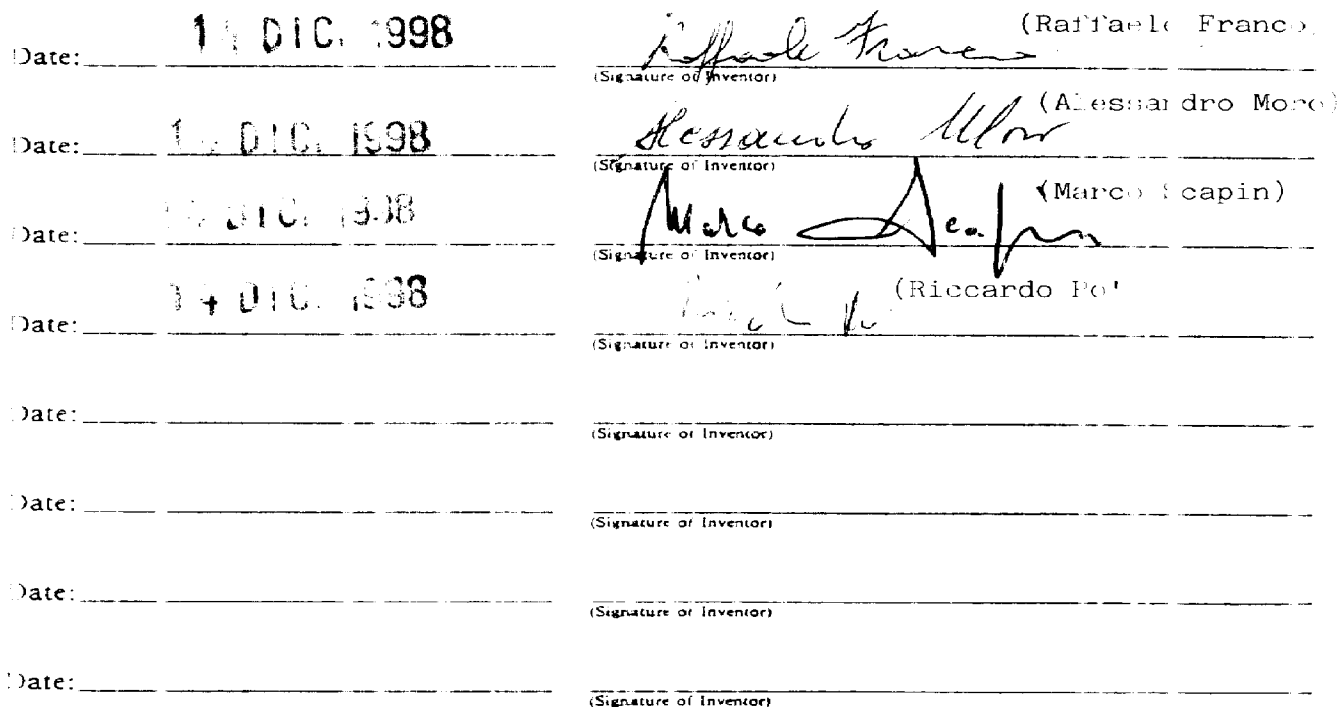 Date: DIC. 1998 Raffaele Franco (Raffaele Franco)
(Signature of Inventor)
Date: DIC. 1998 Alessandro Moro (Alessandro Moro)
(Signature of Inventor)
Date: DIC. 1998 Marco Scapin (Marco Scapin)
(Signature of Inventor)
Date: 14 DIC. 1998 (Riccardo Po'
(Signature of Inventor)
Date:
(Signature of Inventor)
Date:
(Signature of Inventor)
Date:
(Signature of Inventor)
Date:
(Signature of Inventor)